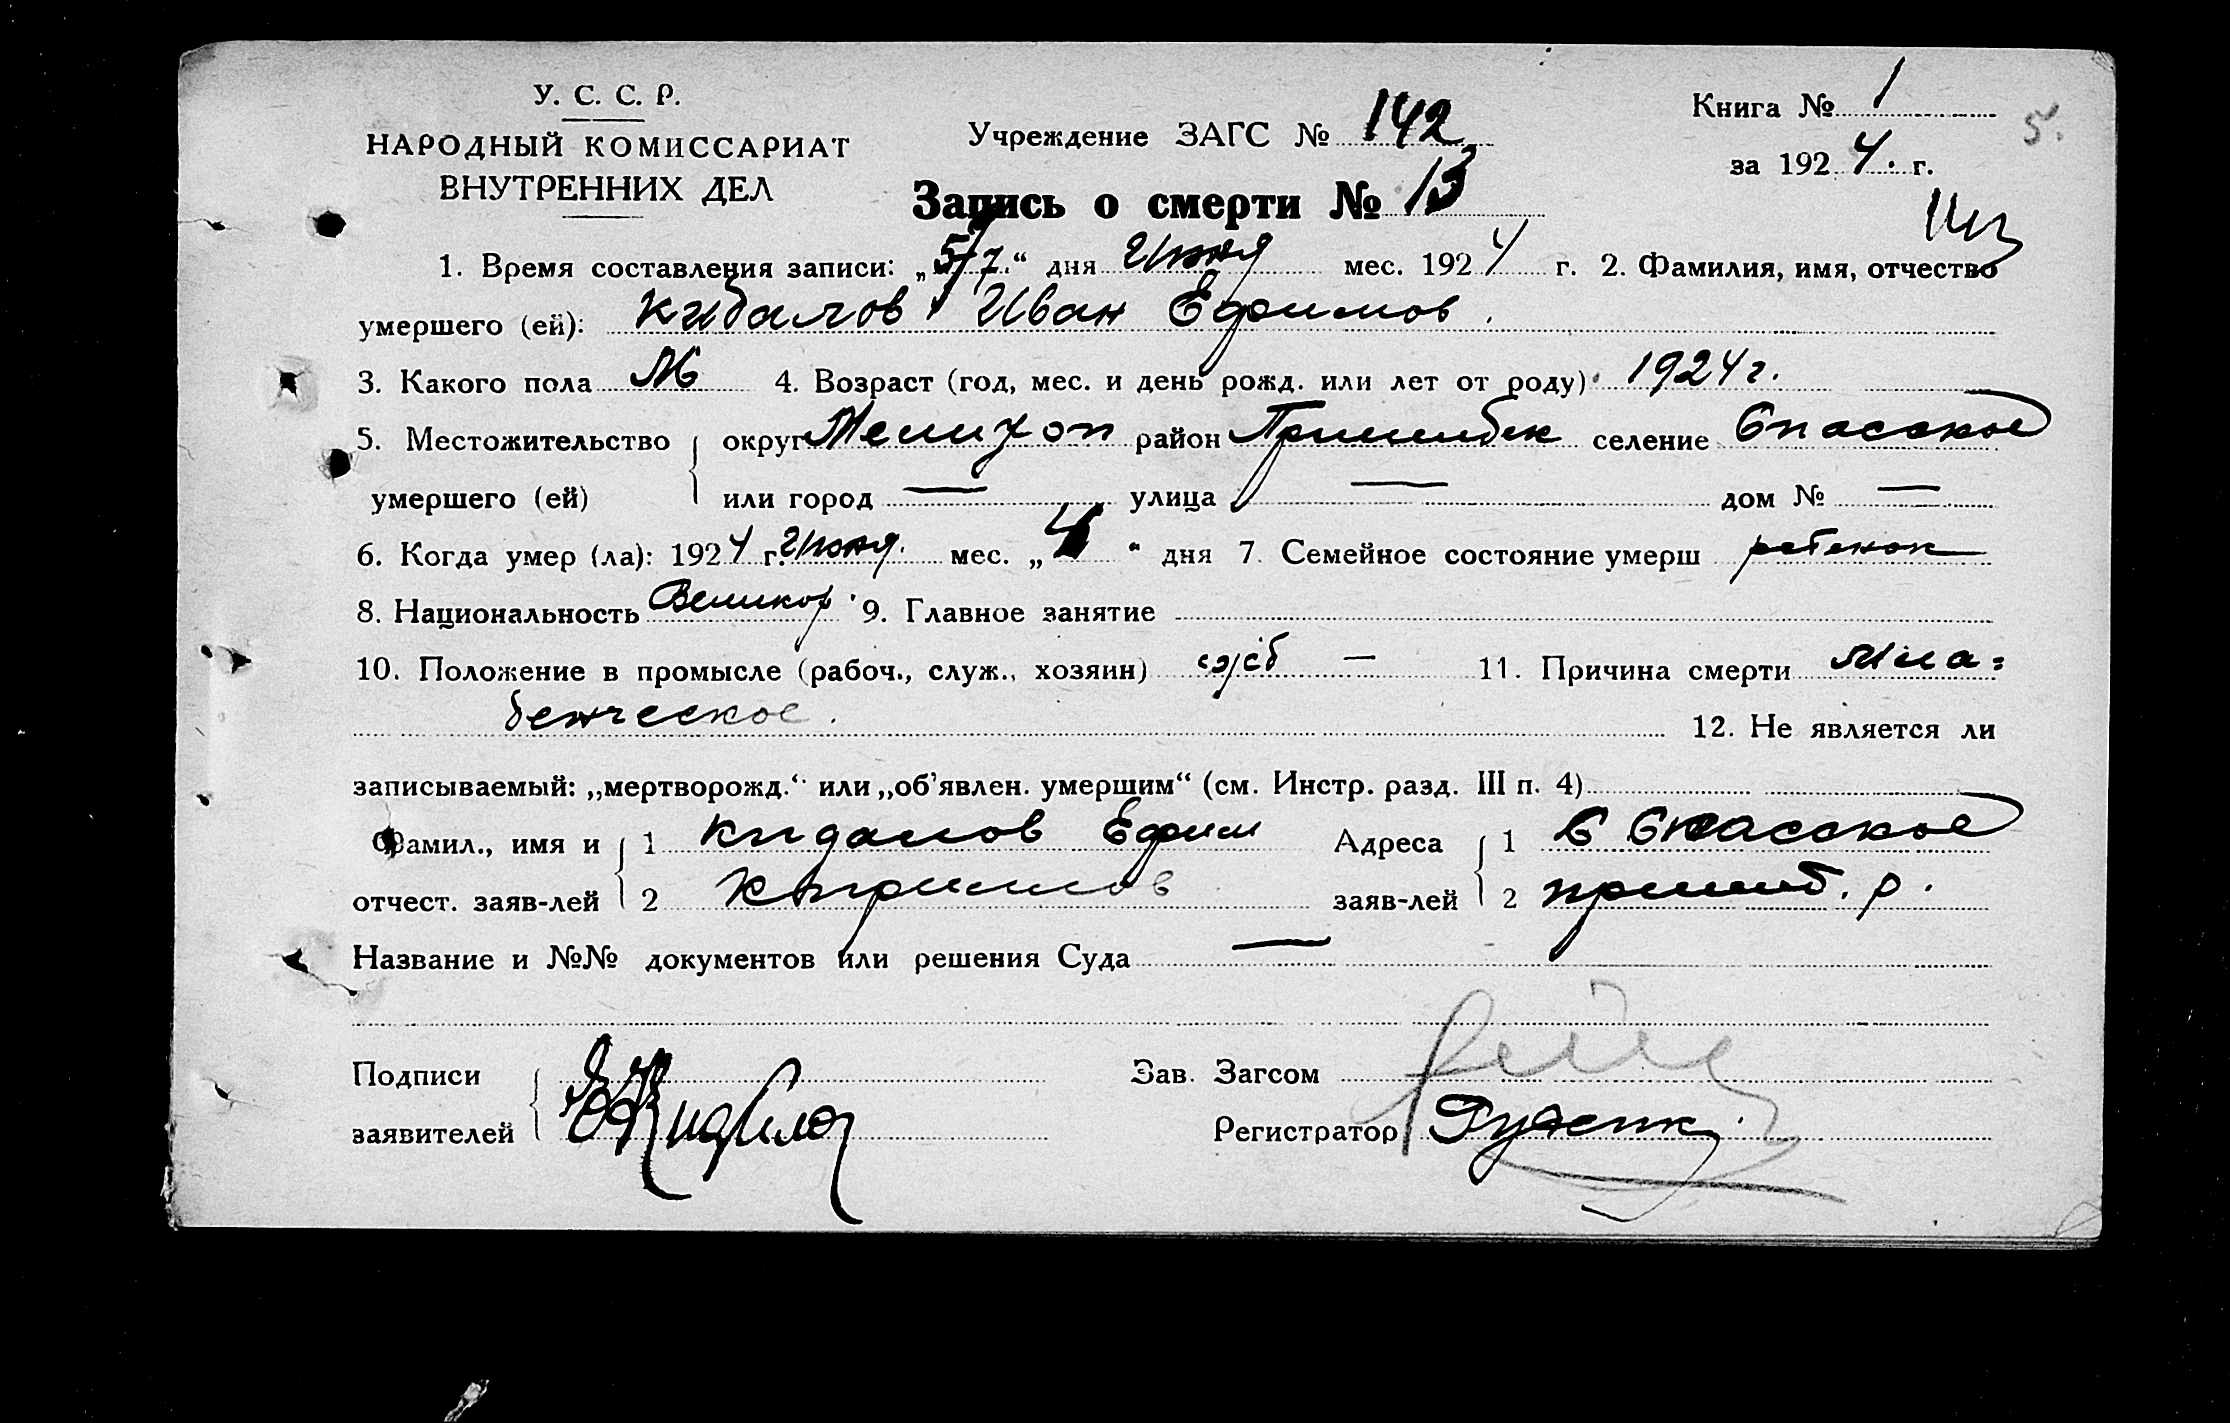 У. С. С. Р.
НАРОДНЫЙ КОМИССАРИАТ
ВНУТРЕННИХ ДЕЛ
Учреждение ЗАГС № 142
Книга № 1
за 1924. г.
5.
Запись о смерти № 13
1. Время составления записи: „5/7.“ дня Июня мес. 1924 г. 2. Фамилия, имя, отчество
умершего (ей): Кидалов Иван Ефимов.
3. Какого пола М 4. Возраст (год, мес. и день рожд. или лет от роду) 1924 г.
5. Местожительство округ Мелитоп район Пришибск селение Спасское
умершего (ей) или город — улица — дом № —
6. Когда умер (ла): 1924 г. Июня. мес. „4“ дня 7. Семейное состояние умерш ребенок
8. Национальность Великор. 9. Главное занятие
10. Положение в промысле (рабоч., служ., хозяин) — 11. Причина смерти Мла=
денческое.
12. Не является ли
записываемый: „мертворожд.“ или „об'явлен. умершим“ (см. Инстр. разд. III п. 4)
Фамил., имя и 1 Кидалов Ефим Адреса 1 С Спасское
отчест. заяв-лей 2 заяв-лей 2 пришиб. р.
Название и №№ документов или решения Суда —
Подписи
Зав. Загсом
заявителей
Регистратор